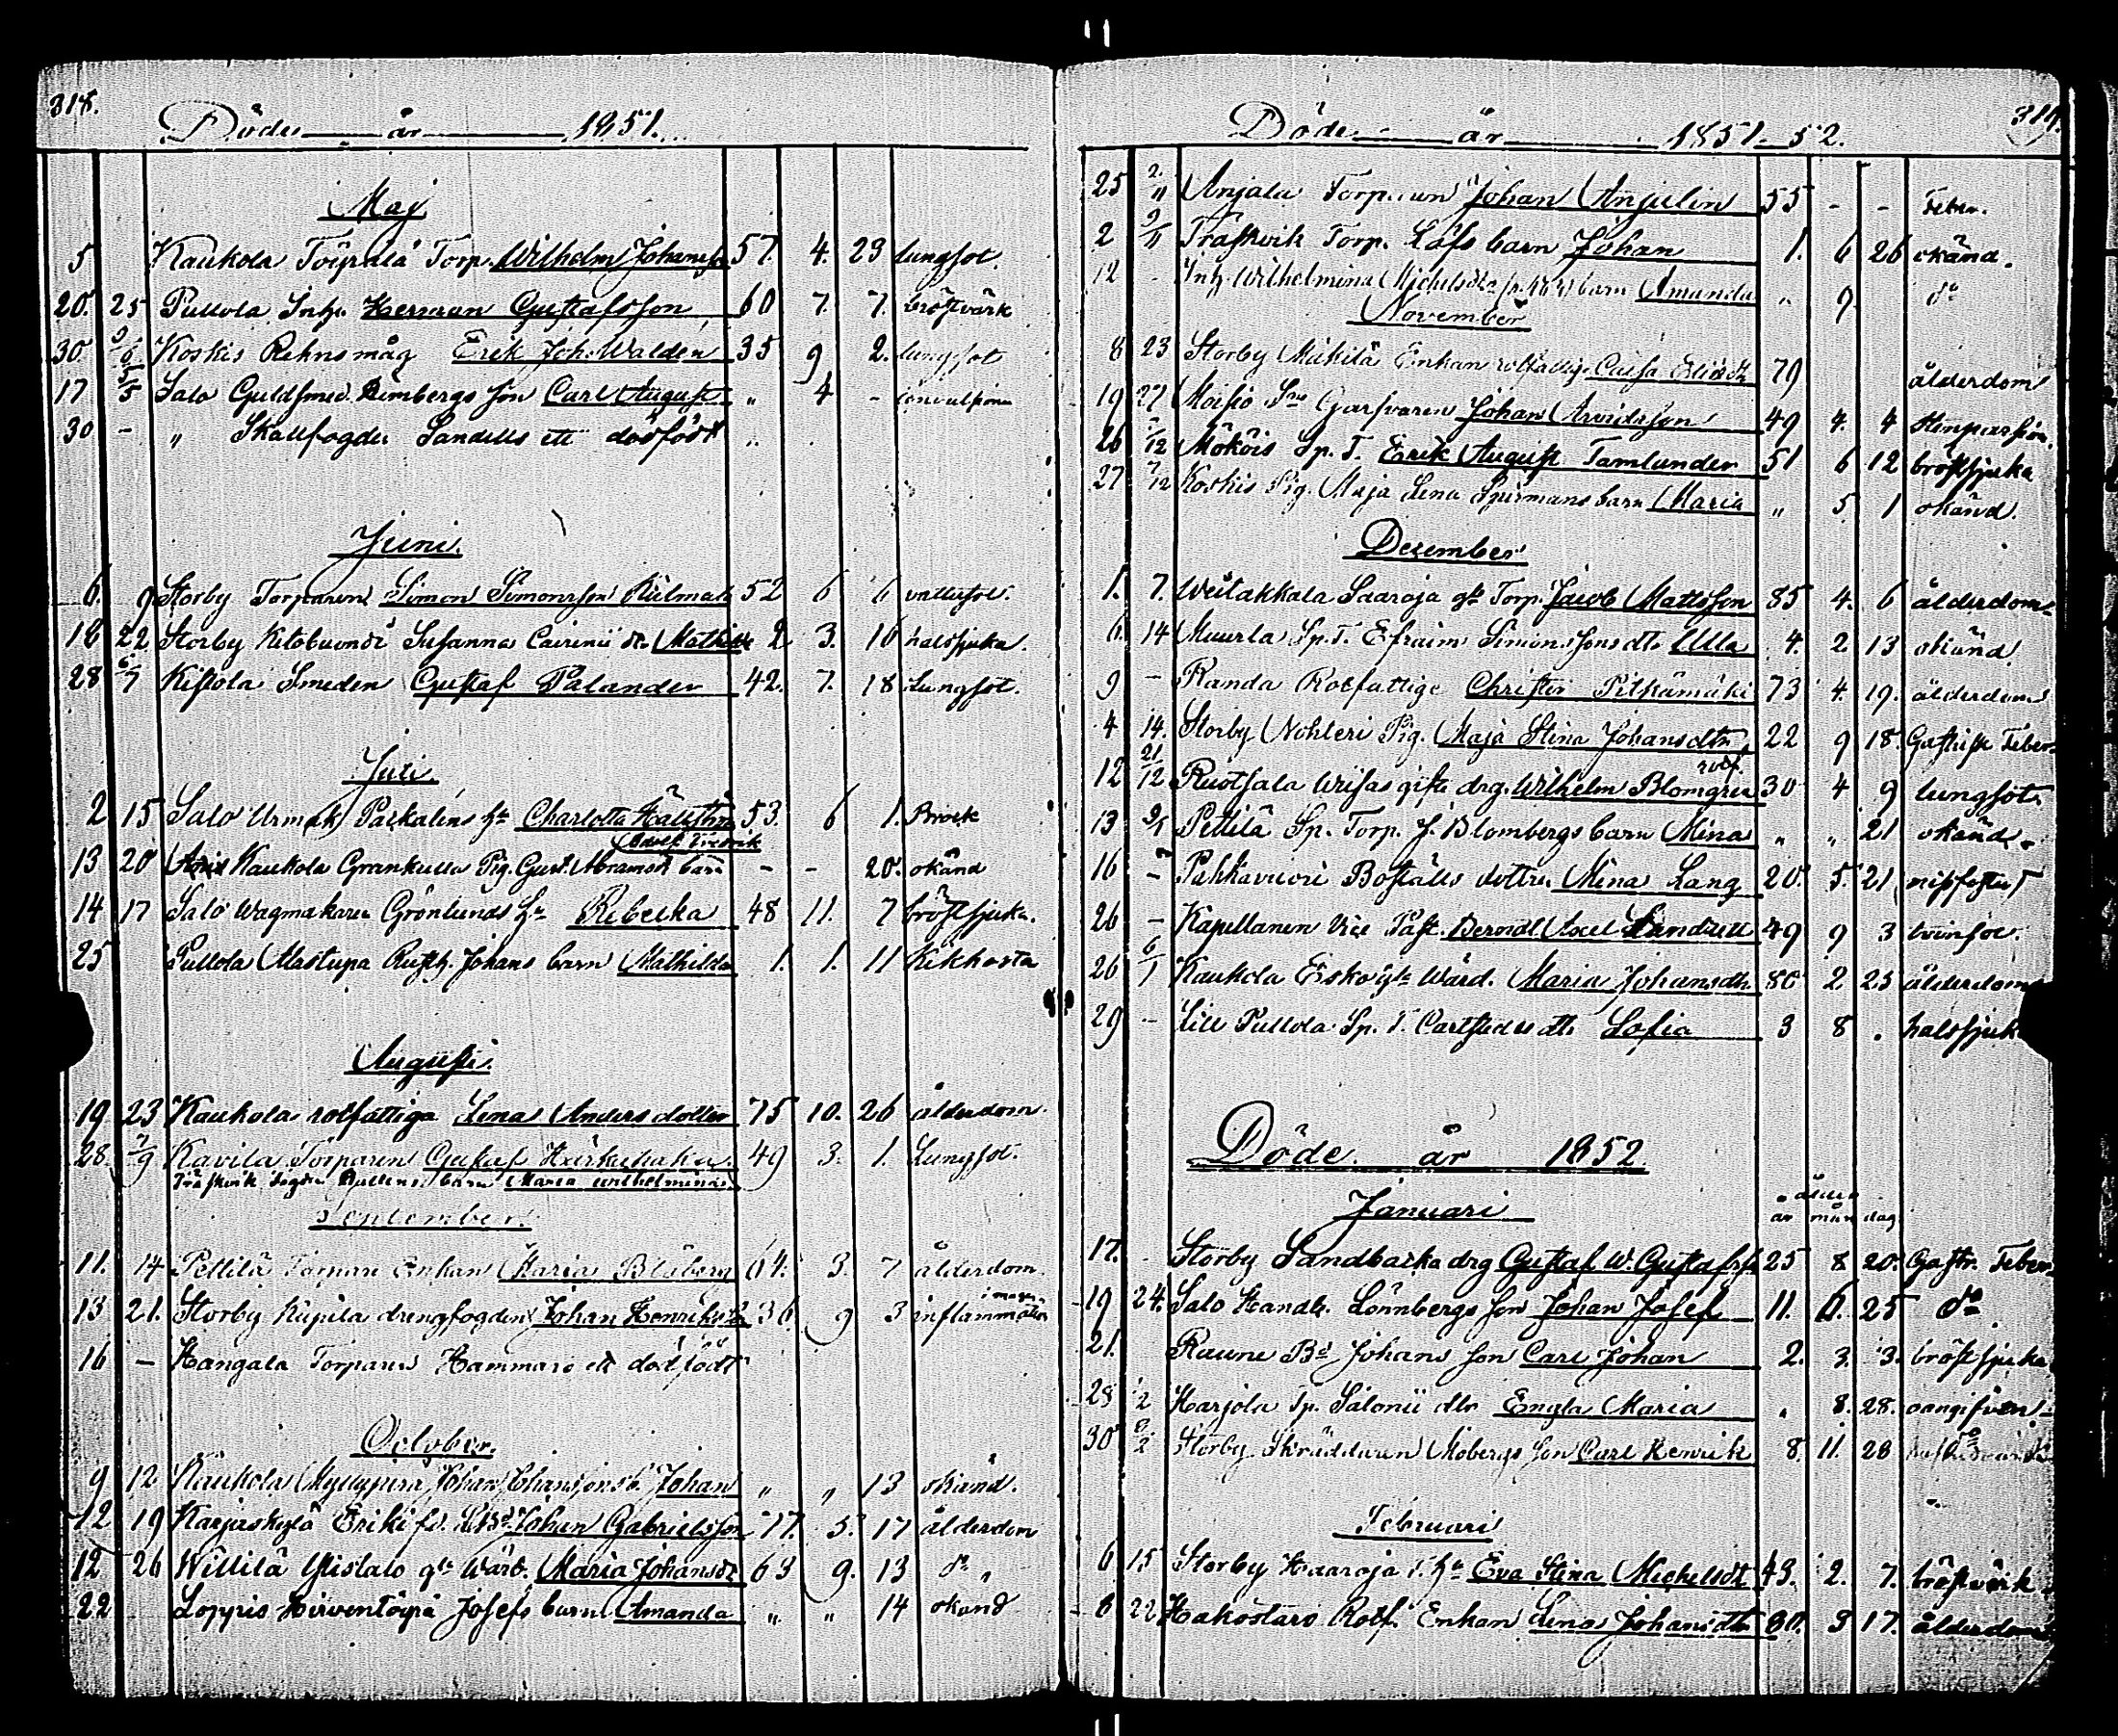 318.
Döde år 1851.
Maj
5 Kaukola Töyrälä Torp. Wilhelm Johanss. 57. 4. 23 lungsot.
20. 25 Pullola Inh. Herman Gustafsson 60 7. 7. bröstvärk
30. 9/6 Koskis Rehnsmåg Erik Joh. Walden 35 9 2. lungsot
17 5/5 Salo Guldsmed. Rimbergs son Carl August " 4 - convulsion
30 - " Skallfogden Sandells ett dödfödt "
Juni.
6. 9 Storby Torparen Simon Simonsson Kulmala 52 6 6 vattusot.
16 22 Storby Susanna dr. Mathilda 2 3. 16 halssjuka.
28 6/7 Kistola Smeden Gustaf Palander 42. 7. 18 Lungsot.
Juli.
2 15 Salo Urmak. Parkaléns h:u Charlotta Hällström 53. 6 1. Bråck
Adolf Fredrik
13 20 Kaukola Grankulla Pig. Gust. Abramsd. barn - - 20. okänd
14 17 Salo Wagmakare Grönlunds h:u Rebecka 48 11. 7 bröstsjuka.
25 Pullola Mastupa Rusth. Johans barn Mathilda 1. 1. 11 Kikhosta
Augusti.
19 23 Kaukola rotfattiga Lena Anders dotter 75 10. 26 ålderdom.
28. 7/9 Kavila Torparen Gustaf 49 3. 1. Lungsot.
Träskvik barn Maria Wilhelmina
September.
11. 14 Pettilä Torpare Enkan Maria Blåberg 64. 3. 7 ålderdom.
13 21. Storby drengfogden Johan Henriksson 36 9 3 inflammation i magen
16 - Hangala Torparen Hammars ett dödfödt
October.
9 12 Kaukola Johan Johanssons s. Johan " " 13 okänd.
12 19 Karjaskylä Erikis Johan Gabrielsson 77. 5. 17 ålderdom
12 26 Willilä Ylistalo g:la Wärd. Maria Johansdr 63 9. 13 d:o
22 Loppis Hirventöyrä Josefs barn Amanda " " 14 okänd
319.
Döde år 1851-52.
25 2/11 Anjala Torparen Johan Anjelin 55 - - Feber.
2 9/11 Träskvik Torp. Löfs barn Johan 1. 6 26 okänd.
12 - Inh. Wilhelmina Michelsdr barn Amanda " 9 d:o
November
8 23 Storby Mikkilä Enkan rotfattig Caisa 79 ålderdom
19 27 Moisio Garfvaren Johan Arvidsson 49 4. 4 Stenpassion.
26 7/12 Mököis Sp. T. Erik August Tamlander 51 6 12 bröstsjuka
27 7/12 Koskis Pig. Maja Lena barn Maria " 5 1 okänd.
December
1. 7. Weitakkala Saaroja g:la Torp. Jacob Mattsson 85 4. 6 ålderdom
6. 14 Muurla Sp. T. Efraim Simonssons dtr Ulla 4. 2 13 okänd
9 - Randa Rotfattige Christer Pitkämäki 73 4. 19. ålderdom
4 14. Storby Nohteri Pig. Maja Stina Johansdtr 22 9 18. Gastrisk Feber
12 21/12 Ruotsala gifte drg. Wilhelm Blomgren rotf. 30 4 9 lungsot
13 Pettilä Sp. Torp. J. Blombergs barn Mina " " 21 okänd.
16 - Pahkavuori Boställs dottren Mina Lang 20. 5. 21
26 - Kapellanen Vice Past. Berndt Axel 49 9 3 tvinsot.
26 6/1 Kaukola Eisko g:la Wärd. Maria Johansdtr. 80 2 23 ålderdom
29 - Lill Pullola Sp. T. Carlstedts dtr Sofia 3 8 . halssjuk
Döde år 1852
ålder
Januari år mån dag
17. Storby Sandbacka drg Gustaf W. Gustafss. 25 8 20. Gastr. Feber
19 24. Salo Handl. Lönnbergs son Johan Josef 11. 6. 25 d:o
21. Raune Bd Johans son Carl Johan 2. 3. 3. bröstsjuka
28 Harjola Tp. Salonii dtr Engla Maria " 8. 28. oangifven
30 Storby Skräddaren Mobergs son Carl Henrik 8. 11. 28
Februari
6 15 Storby Haaroja h:u Eva Stina Michelsdt. 43. 2. 7. bröstvärk
8 22 Hakostaro Rotf. Enkan Lena Johansdtr 80. 3 17. ålderdom